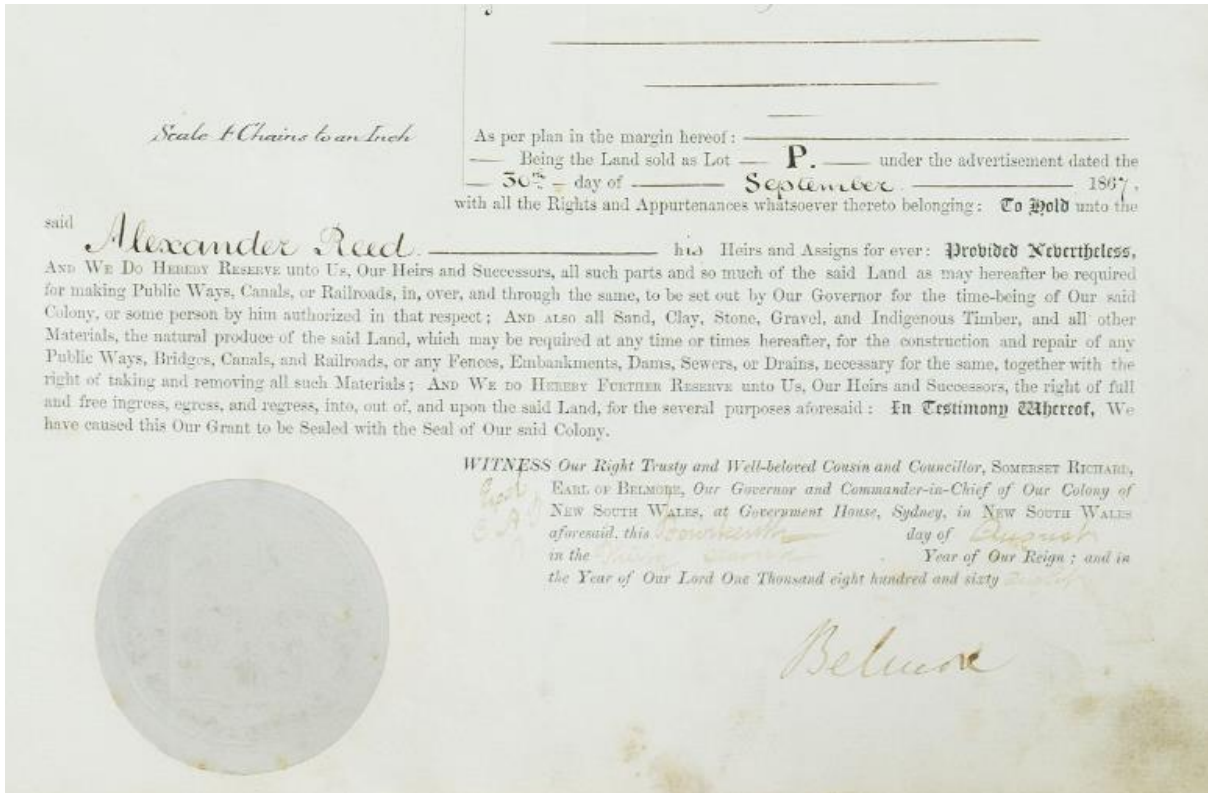 Scale 4 Chains to an Inch
As per plan in the margin hereof:
Being the Land sold as Lot P. under the advertisement dated the
30th day of September 1867,
with all the Rights and Appurtenances whatsoever thereto belonging: To Hold unto the
said
Alexander Reed. his Heirs and Assigns for ever: Provided Nevertheless,
AND WE DO HEREBY RESERVE unto Us, Our Heirs and Successors, all such parts and so much of the said Land as may hereafter be required
for making Public Ways, Canals, or Railroads, in, over, and through the same, to be set out by Our Governor for the time-being of Our said
Colony, or some person by him authorized in that respect; AND ALSO all Sand, Clay, Stone, Gravel, and Indigenous Timber, and all other
Materials, the natural produce of the said Land, which may be required at any time or times hereafter, for the construction and repair of any
Public Ways, Bridges, Canals, and Railroads, or any Fences, Embankments, Dams, Sewers, or Drains, necessary for the same, together with the
right of taking and removing all such Materials; AND WE DO HEREBY FURTHER RESERVE unto Us, Our Heirs and Successors, the right of full
and free ingress, egress, and regress, into, out of, and upon the said Land, for the several purposes aforesaid: In Testimony Whereof, We
have caused this Our Grant to be Sealed with the Seal of Our said Colony.
WITNESS Our Right Trusty and Well-beloved Cousin and Councillor, SOMERSET RICHARD,
EARL OF BELMORE, Our Governor and Commander-in-Chief of Our Colony of
NEW SOUTH WALES, at Government House, Sydney, in NEW SOUTH WALES
aforesaid, this Fourteenth day of August
in the Thirty second Year of Our Reign; and in
the Year of Our Lord One Thousand eight hundred and sixty eight
Belmore